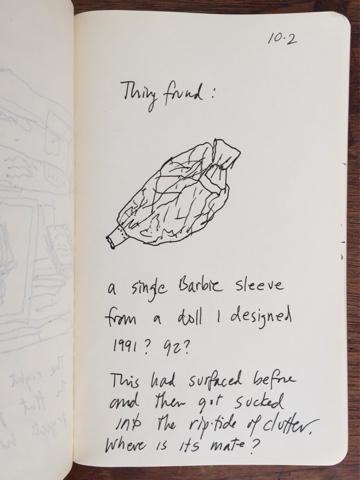 10.2
Thing found:
a single Barbie sleeve
from a doll I designed
1991? 92?
This had surfaced before
and then got sucked
into the rip-tide of clutter.
Where is its mate?